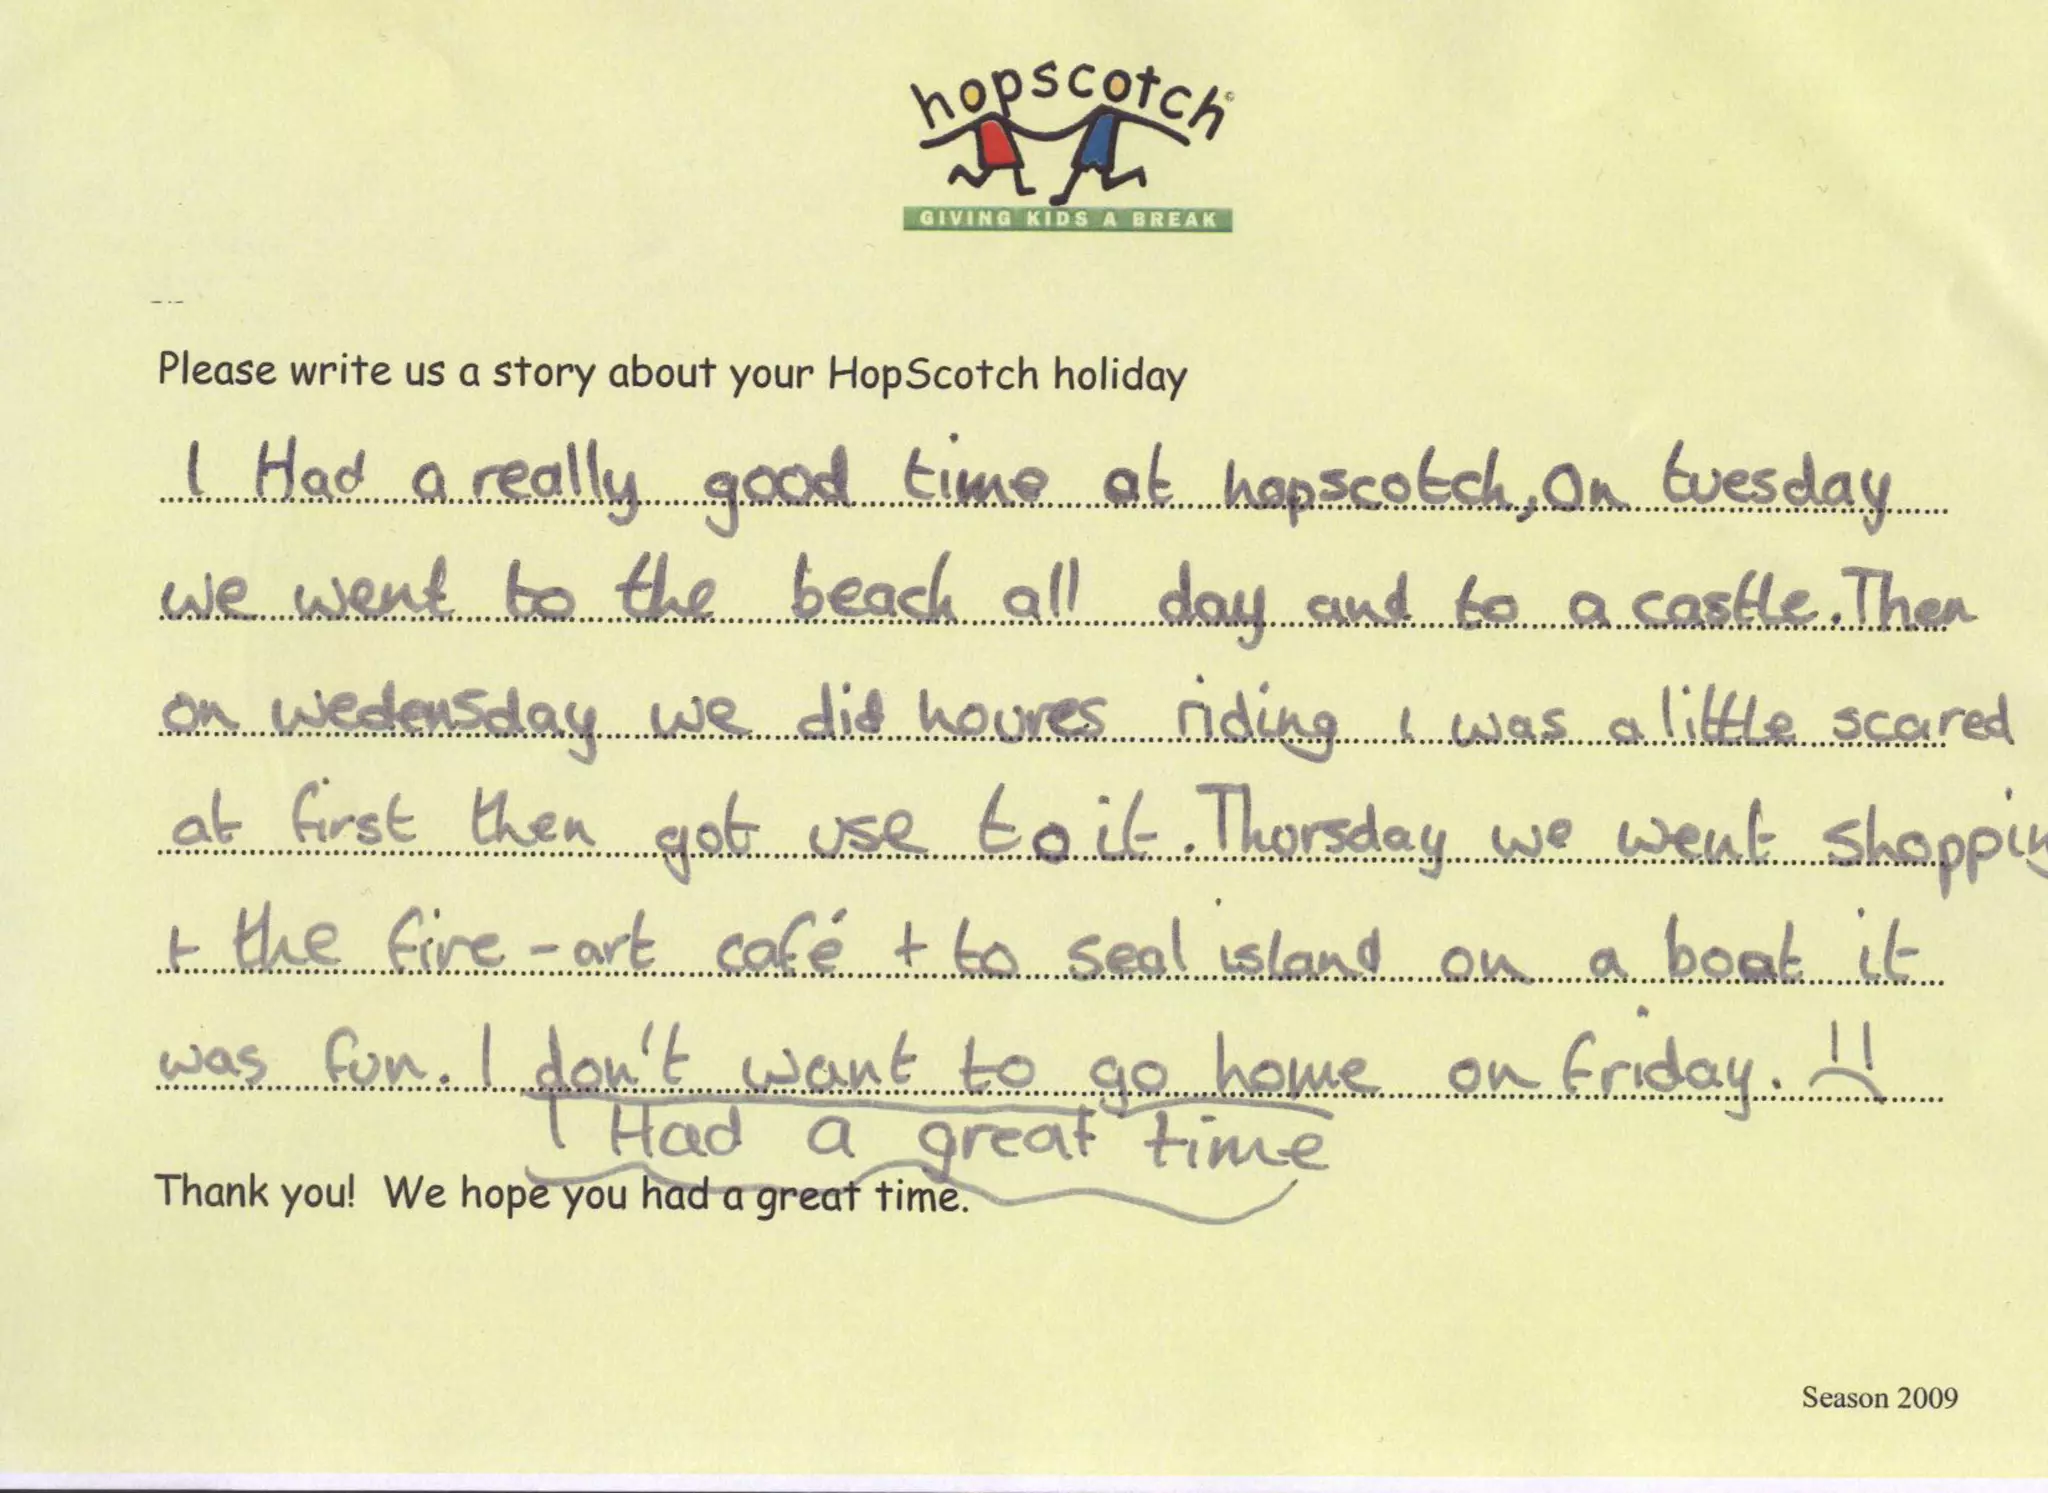 hopscotch©
GIVING KIDS A BREAK
Please write us a story about your HopScotch holiday
I Had a really good time at hopscotch, On tuesday
we went to the beach all day and to a castle. Then
on wedensday we did houres riding I was a little scared
at first then got use to it. Thorsday we went shopping
+ the fire-art café + to seal island on a boat it
was fun. I don't want to go home on friday.
I Had a great time
Thank you! We hope you had a great time.
Season 2009